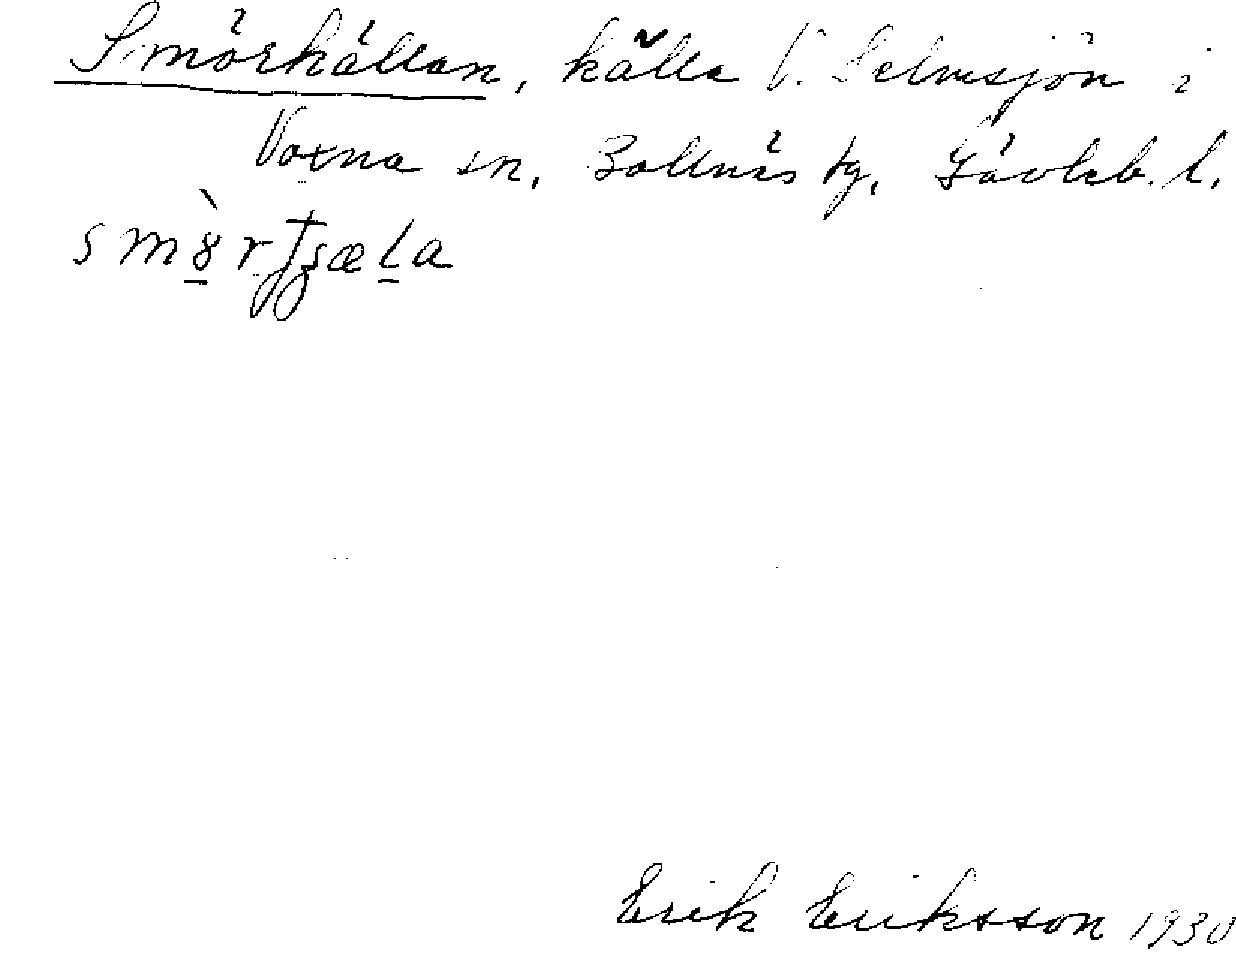 Smörkällan, källa V. Selmsjön i
Voxna sn, Bollnäs tg, Gävleb. l.
Erik Eriksson 1930